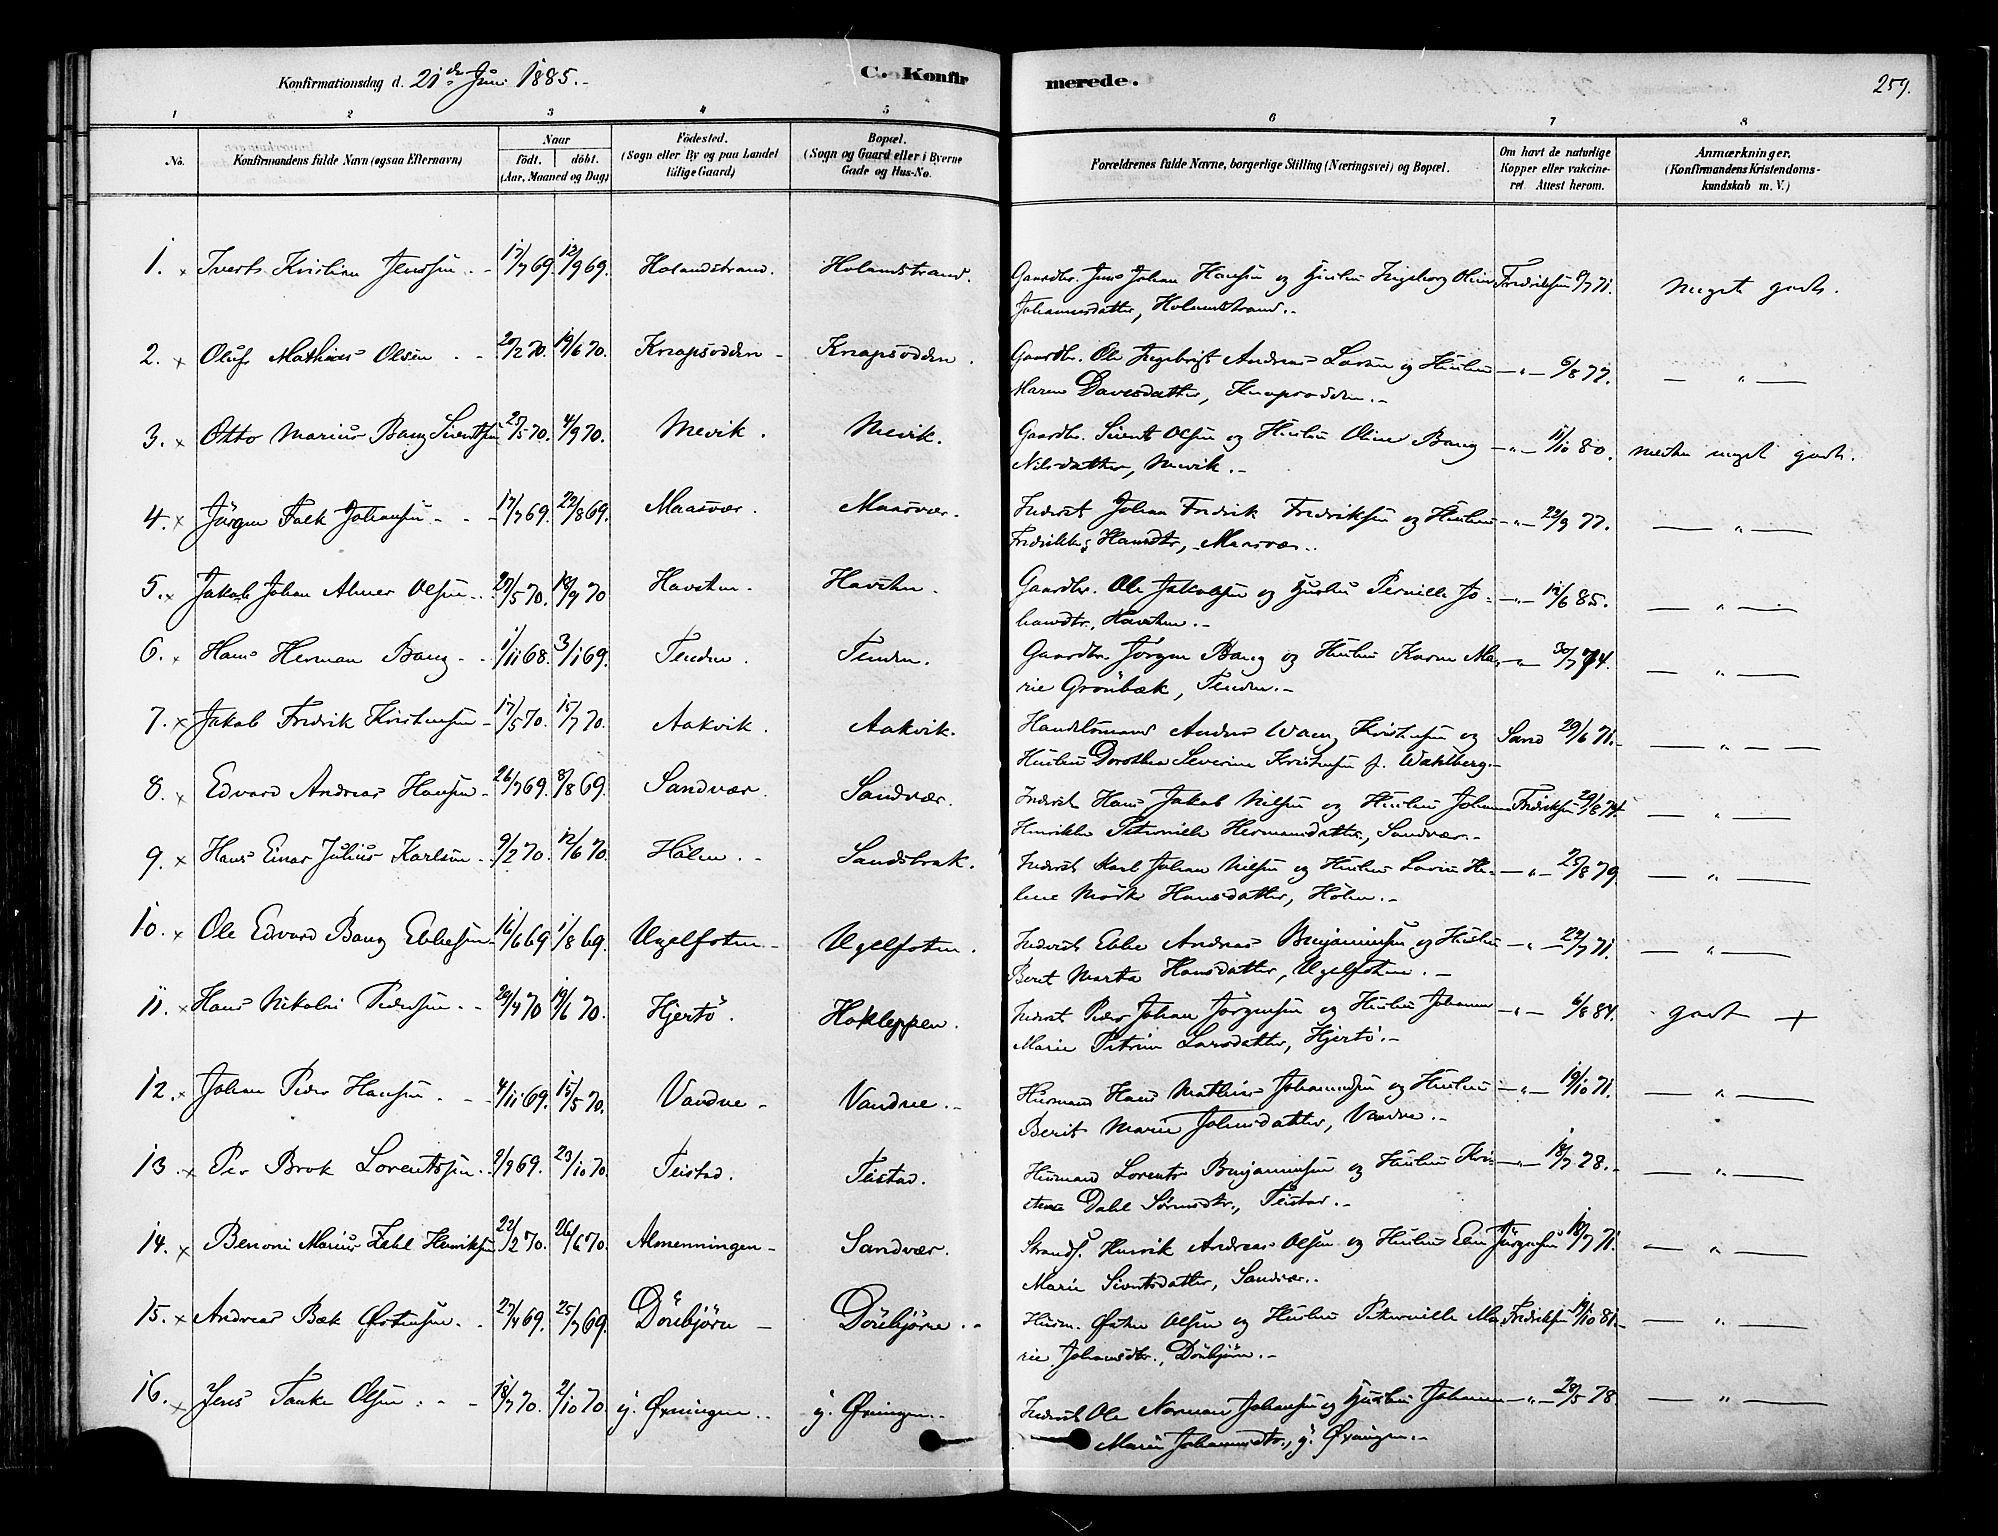 Konfirmationsdag d. 21de Juni 1885.-
C. Konfirmerede.
259.
1 2 3 4 5 6 7 8
No.
Konfirmandens fulde Navn (ogsaa Efternavn)
Naar
födt. döbt.
(Aar, Maaned og Dag)
Födested.
(Sogn eller By og paa Landet tillige Gaard)
Bopæl.
(Sogn og Gaard eller i Byerne
Gade og Hus-No.
Forældrenes fulde Navne, borgerlige Stilling (Næringsvei) og Bopæl.
Om havt de naturlige
Kopper eller vakcineret.
Attest herom.
Anmærkninger.
(Konfirmandens Kristendomskundskab m. V.)
1. x Iverts Kristian Jenssen - 17/7 69. 12/9 69. Holandstrand. Holandstrand. Gaardbr. Jens Johan Hansen og Hustru Ingeborg Oline Fredriksen 9/7 71. Meget godt.
Johannesdatter, Holandstrand.-
2. x Oluf Mathias Olsen - 20/2 70. 19/6 70. Knapsodden - Knapsodden. Gaardbr. Ole Ingebrigt Andreas Larsen og Hustru -"- 6/8 77. - " -
Maren Davesdatter, Knapsodden.-
3. x Otto Marius Bang Sivertsen 25/5 70. 4/9 70. Mevik. Mevik. Gaardbr. Sivert Olsen og Hustru Oline Bang -"- 11/10 80. næsten meget godt.
Nilsdatter, Mevik.-
4. x Jørgen Falk Johansen - 17/7 69. 22/8 69. Maasvær. Maasvær. Inderst Johan Fredrik Fredriksen og Hustru -"- 22/9 77. - " -
Fredrikke Hansdtr., Maasvær.
5. x Jakob Johan Almer Olsen 27/5 70. 18/9 70 Havsten. Havsten. Gaardbr. Ole Jakobsen og Hustru Pernille Jo- -"- 12/6 85. - " -
hansdtr., Havsten.-
6. x Hans Herman Bang - 1/11 68. 3/1 69. Tenden. Tenden. Gaardbr. Jørgen Bang og Hustru Karen Ma- -"- 30/7 74. - " -
rie Grönbæk, Tenden.-
7. x Jakob Fredrik Kristensen - 17/5 70. 15/7 70. Aakvik. Aakvik. Handelsmand Anders Wang Kristensen og Sand 29/6 71. - " -
Hustru Dorothea Severine Kristensen f. Wahlberg.-
8. x Edvard Andreas Hansen - 26/7 69. 8/8 69. Sandvær. Sandvær. Inderst Hans Jakob Nilsen og Hustru Johanna Fredriksen 29/8 74. - " -
Henrikke Peternille Hermansdatter, Sandvær.-
9. x Hans Einar Julius Karlsen - 9/2 70. 12/6 70. Hölen. - Sandstrak. Inderst Karl Johan Nilsen og Hustru Lovise He- -"- 25/8 79. - " -
lene Mörk Hansdatter, Hölen.-
10. x Ole Edvard Bang Ebbesen 16/6 69 1/8 69. Ugelfoten - Ugelfoten. Inderst Ebbe Andreas Benjaminsen og Hustru -"- 22/7 71. - " -
Berit Marta Hansdatter, Ugelfoten.-
11. x Hans Nikolai Pedersen - 29/4 70 19/6 70. Hjertö. Hakleppen. Inderst Peder Johan Jörgensen og Hustru Johanna -"- 6/8 84. godt +
Marie Petrine Larsdatter, Hjertö.-
12. x Johan Peder Hansen - 4/11 69. 15/5 70. Vandve - Vandve.- Husmand Hans Mathias Johannesen og Hustru -"- 19/10 71. - " -
Berit Marie Johnsdatter, Vandve.-
13. x Per Brok Lorentssen 9/9 69. 23/10 70. Teistad. Teistad. Husmand Lorents Benjaminsen og Hustru Kri- -"- 18/7 78. - " -
stine Dahl Sörensdtr., Teistad.-
14. x Benoni Marius Zahl Henriksen 22/2 70. 26/6 70. Almenningen - Sandvær. Strands. Henrik Andreas Olsen og Hustru Elen Jörgensen 18/7 71. - " -
Marie Sivertsdatter, Sandvær.
15. x Andreas Bæk Østensen. - 27/4 69. 25/7 69. Dönbjörn - Dönbjörn. - Husm. Østen Olsen og Hustru Peternille Ma- Fredriksen 14/10 81. - " -
rie Johansdtr., Dönbjörn.-
16. x Jens Tanke Olsen - 18/7 70. 2/10 70. y. Øxningen. y. Øxningen. Inderst Ole Norman Johansen og Hustru Johanna -"- 28/5 78. - " -
Marie Johannesdtr., y. Øxningen.-